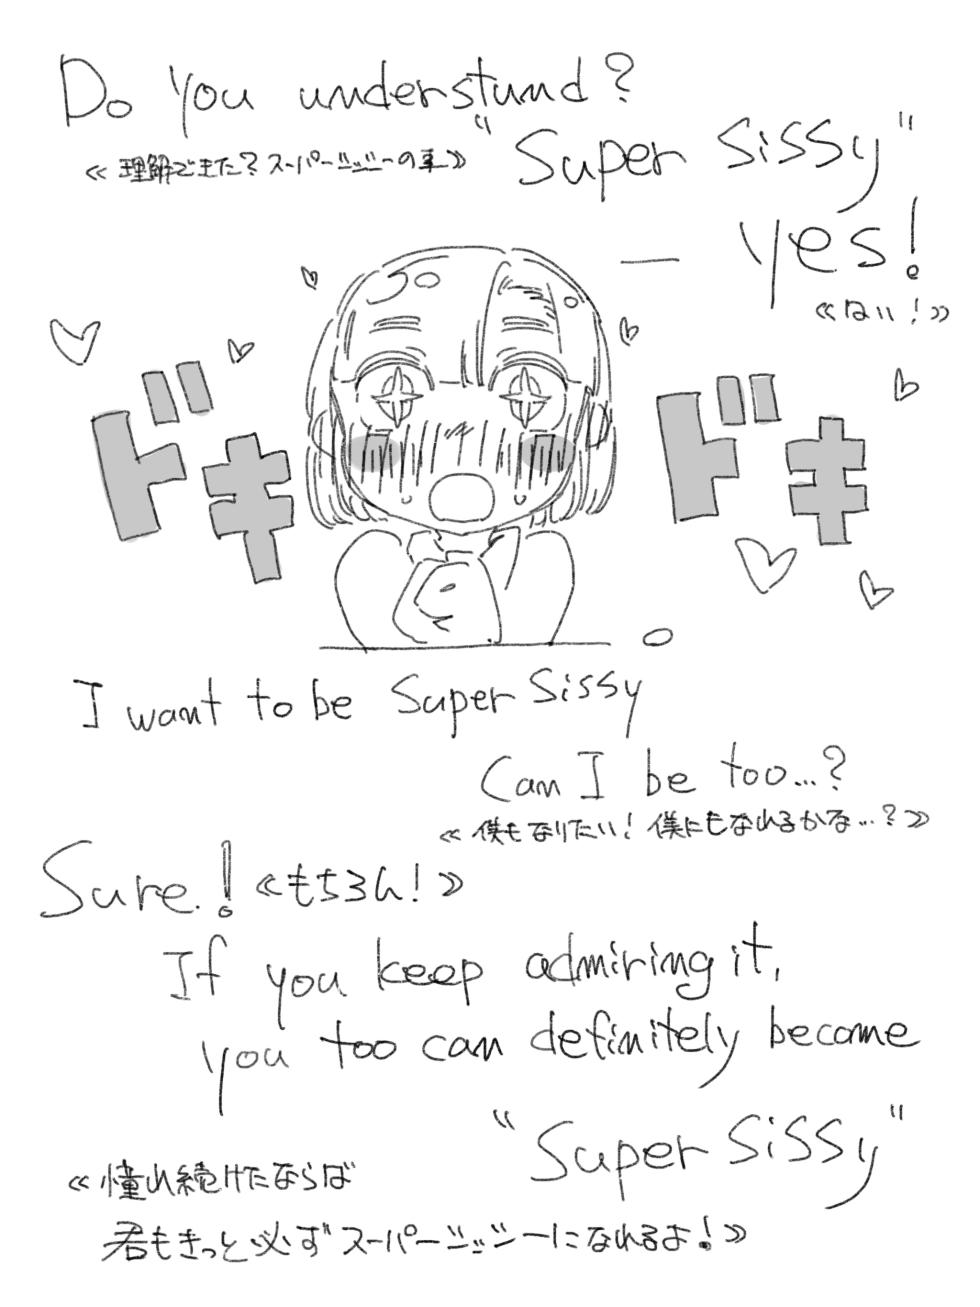 Do you understand?
"Super Sissy"
≪理解できた？スーパーシッシーの事≫
— yes!
≪はい！≫
ドキ
ドキ
I want to be Super Sissy
Can I be too...?
≪僕もなりたい！僕にもなれるかな…？≫
Sure! ≪もちろん！≫
If you keep admiring it,
you too can definitely become
"Super Sissy"
≪憧れ続けたならば
君もきっと必ずスーパーシッシーになれるよ！≫